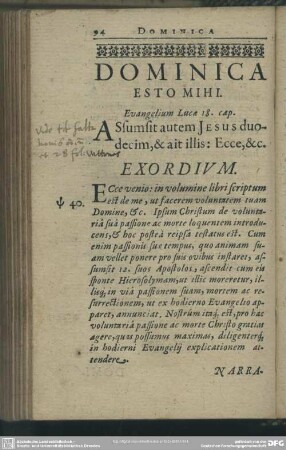 94 DOMINICA
DOMINICA
ESTO MIHI.
Evangelium Lucæ 18. cap.
ASsumsit autem JESUS duo-
decim, & ait illis: Ecce, &c.
EXORDIVM.
ECce venio: in volumine libri scriptum
est de me, ut facerem voluntatem tuam
ψ 40.
Domine, &c. Ipsum Christum de volunta-
riâ suâ passione ac morte loquentem introdu-
cens, & hoc posteà reipsâ testatus est. Cum
enim passionis suæ tempus, quo animam su-
am vellet ponere pro suis ovibus instaret, as-
sumsit 12. suos Apostolos, ascendit cum eis
sponte Hierosolymam, ut illic moreretur, il-
lisq́, in viâ passionem suam, mortem ac re-
surrectionem, ut ex hodierno Evangelio ap-
paret, annunciat. Nostrum itaq́, est, pro hac
voluntariâ passione ac morte Christo gratias
agere, quas possumus maximas, diligenterq́,
in hodierni Evangelij explicationem at-
tendere.
NARRA-